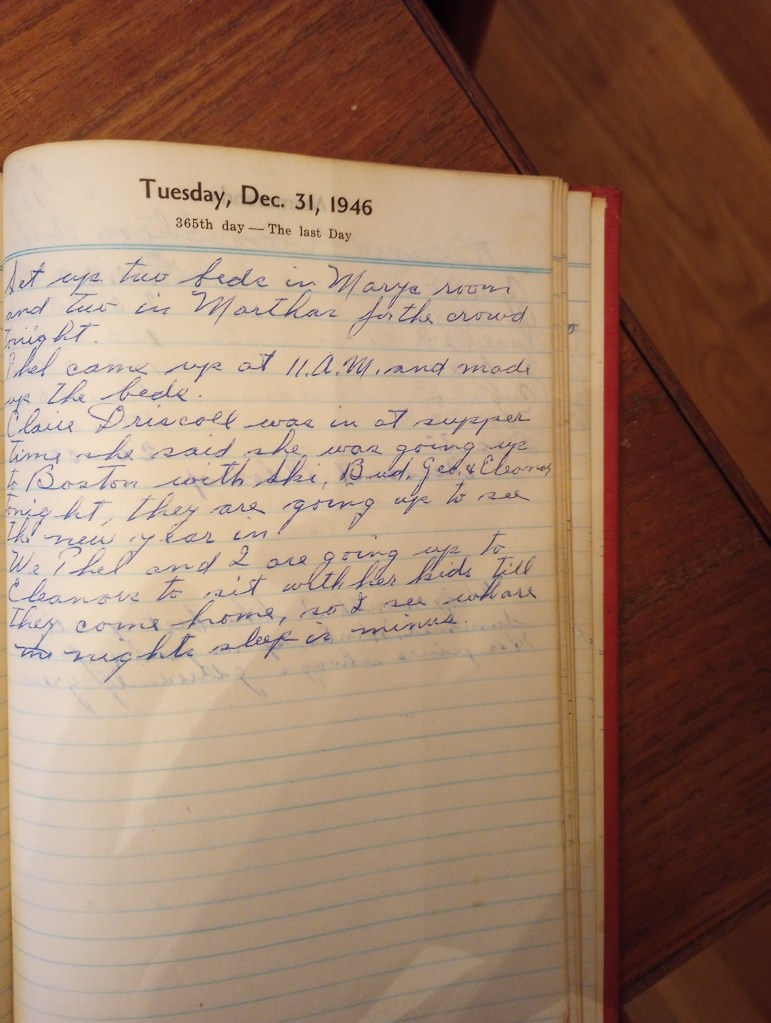 Tuesday, Dec. 31, 1946
365th day — The last Day
Set up two beds in Marys room
and two in Marthas for the crowd
tonight.
Phel came up at 11.A.M. and made
up the beds.
Claire Driscoll was in at supper
time she said she was going up
to Boston with Ski, Bud, Geo, & Eleanor
tonight, they are going up to see
the new year in
We Phel and I are going up to
Eleanors to sit with her kids till
they come home, so I see where
nights sleep is minus